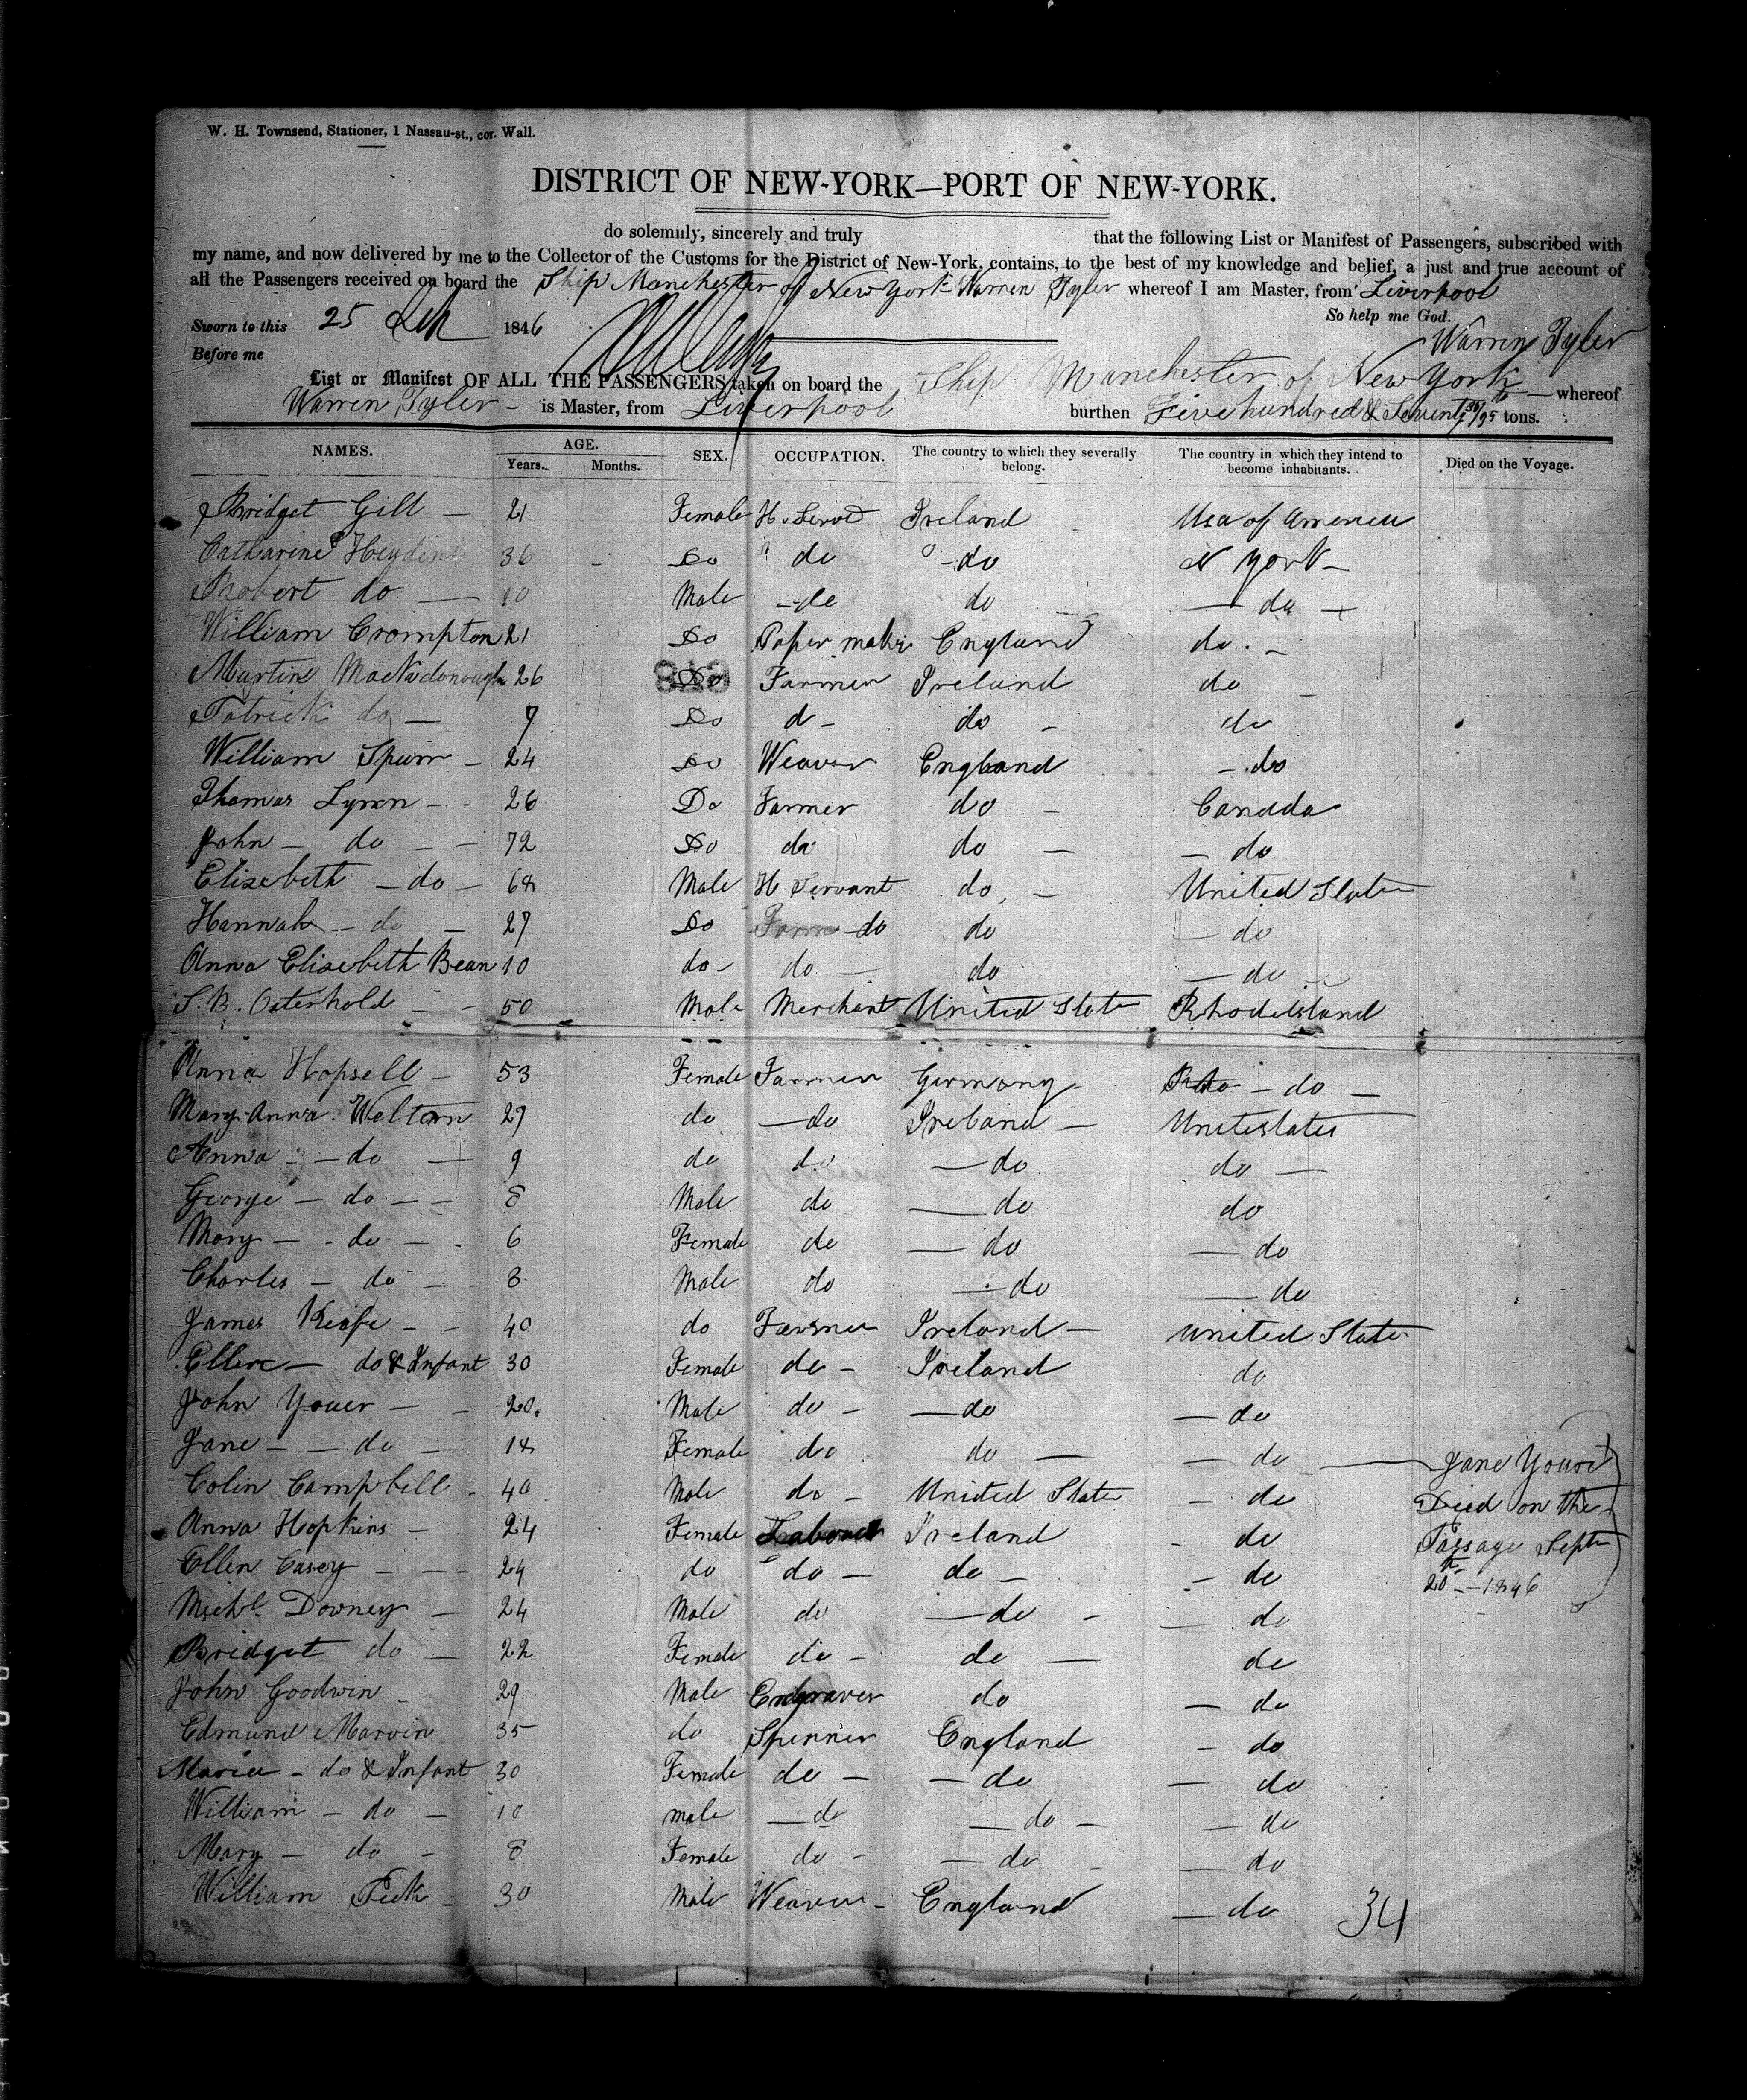 W. H. Townsend, Stationer, 1 Nassau-st., cor. Wall.
DISTRICT OF NEW-YORK—PORT OF NEW-YORK.
do solemnly, sincerely and truly that the following List or Manifest of Passengers, subscribed with
my name, and now delivered by me to the Collector of the Customs for the District of New-York, contains, to the best of my knowledge and belief, a just and true account of
all the Passengers received on board the Ship Manchester of New York Warren Tyler whereof I am Master, from Liverpool
So help me God.
Sworn to this 25 1846
Warren Tyler
Before me
List or Manifest OF ALL THE PASSENGERS taken on board the Ship Manchester of New York whereof
Warren Tyler - is Master, from Liverpool burthen Five hundred & Seventy tons.
NAMES. AGE. SEX. OCCUPATION. The country to which they severally belong. The country in which they intend to become inhabitants. Died on the Voyage.
Years. Months.
Bridget Gill — 21 Female Ireland of America
Catharine 36 Do do do N York —
Robert do — 10 Male do do — do —
William Crompton 21 Do Paper maker England do. —
Martin Mackdonough 26 Do Farmer Ireland do —
Patrick do — 7 Do d — do — do
William Spurr — 24 Do Weaver England — do
Thomas Lynn — 26 Do Farmer do — Canada
John — do — — 72 Do do do — — do
Elisebeth — do — 64 Male H Servant do, — United State
Hannah — do — 27 Do Farm do do — do
Anna Elisebeth Bean 10 do — do — do — do —
S. B. Osterhold — — 50 Male Merchant United State Rhode Island
Anna Hopsell — 53 Female Farmer Germany — Rho — do —
Mary Anna Weltern 27 do — do Ireland — Unitestates
Anna — do — 9 do do — do do —
George — do — — 8 Male do — do do
Mary — do — 6 Female do — do — do
Charles — do — 3 Male do — do — do
James Keife — — 40 do Farmer Ireland — United State
Ellen — do & Infant 30 Female do — Ireland do
John Youer — — 20. Male do — — do — do
Jane — — do — 14 Female do do — — do — Jane Youre
Colin Campbell — 40 Male do — United State — do Died on the
Anna Hopkins — 24 Female Labourer Ireland — do Passage Septr
Ellen Casey — — 24 do do — do — — do 20th — 1846
Michl. Downey — 24 Male do — do — — do
Bridget do — 22 Female do — do — do
John Goodwin — 29 Male Engraver do — do
Edmund Marvin 35 do Spinner England — do
Maria — do & Infant 30 Female do — — do — do
William — do — 10 male — do — do — — do
Mary — do — 8 Female do — — do — — do
William — 30 Male Weaver — England — do
34